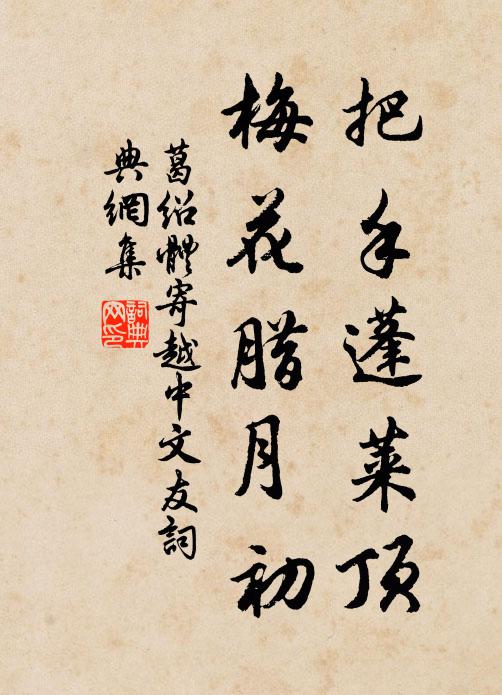 把手蓬莱顶
梅花腊月初
葛绍體寄越中文友詞
典網集
詞典网印